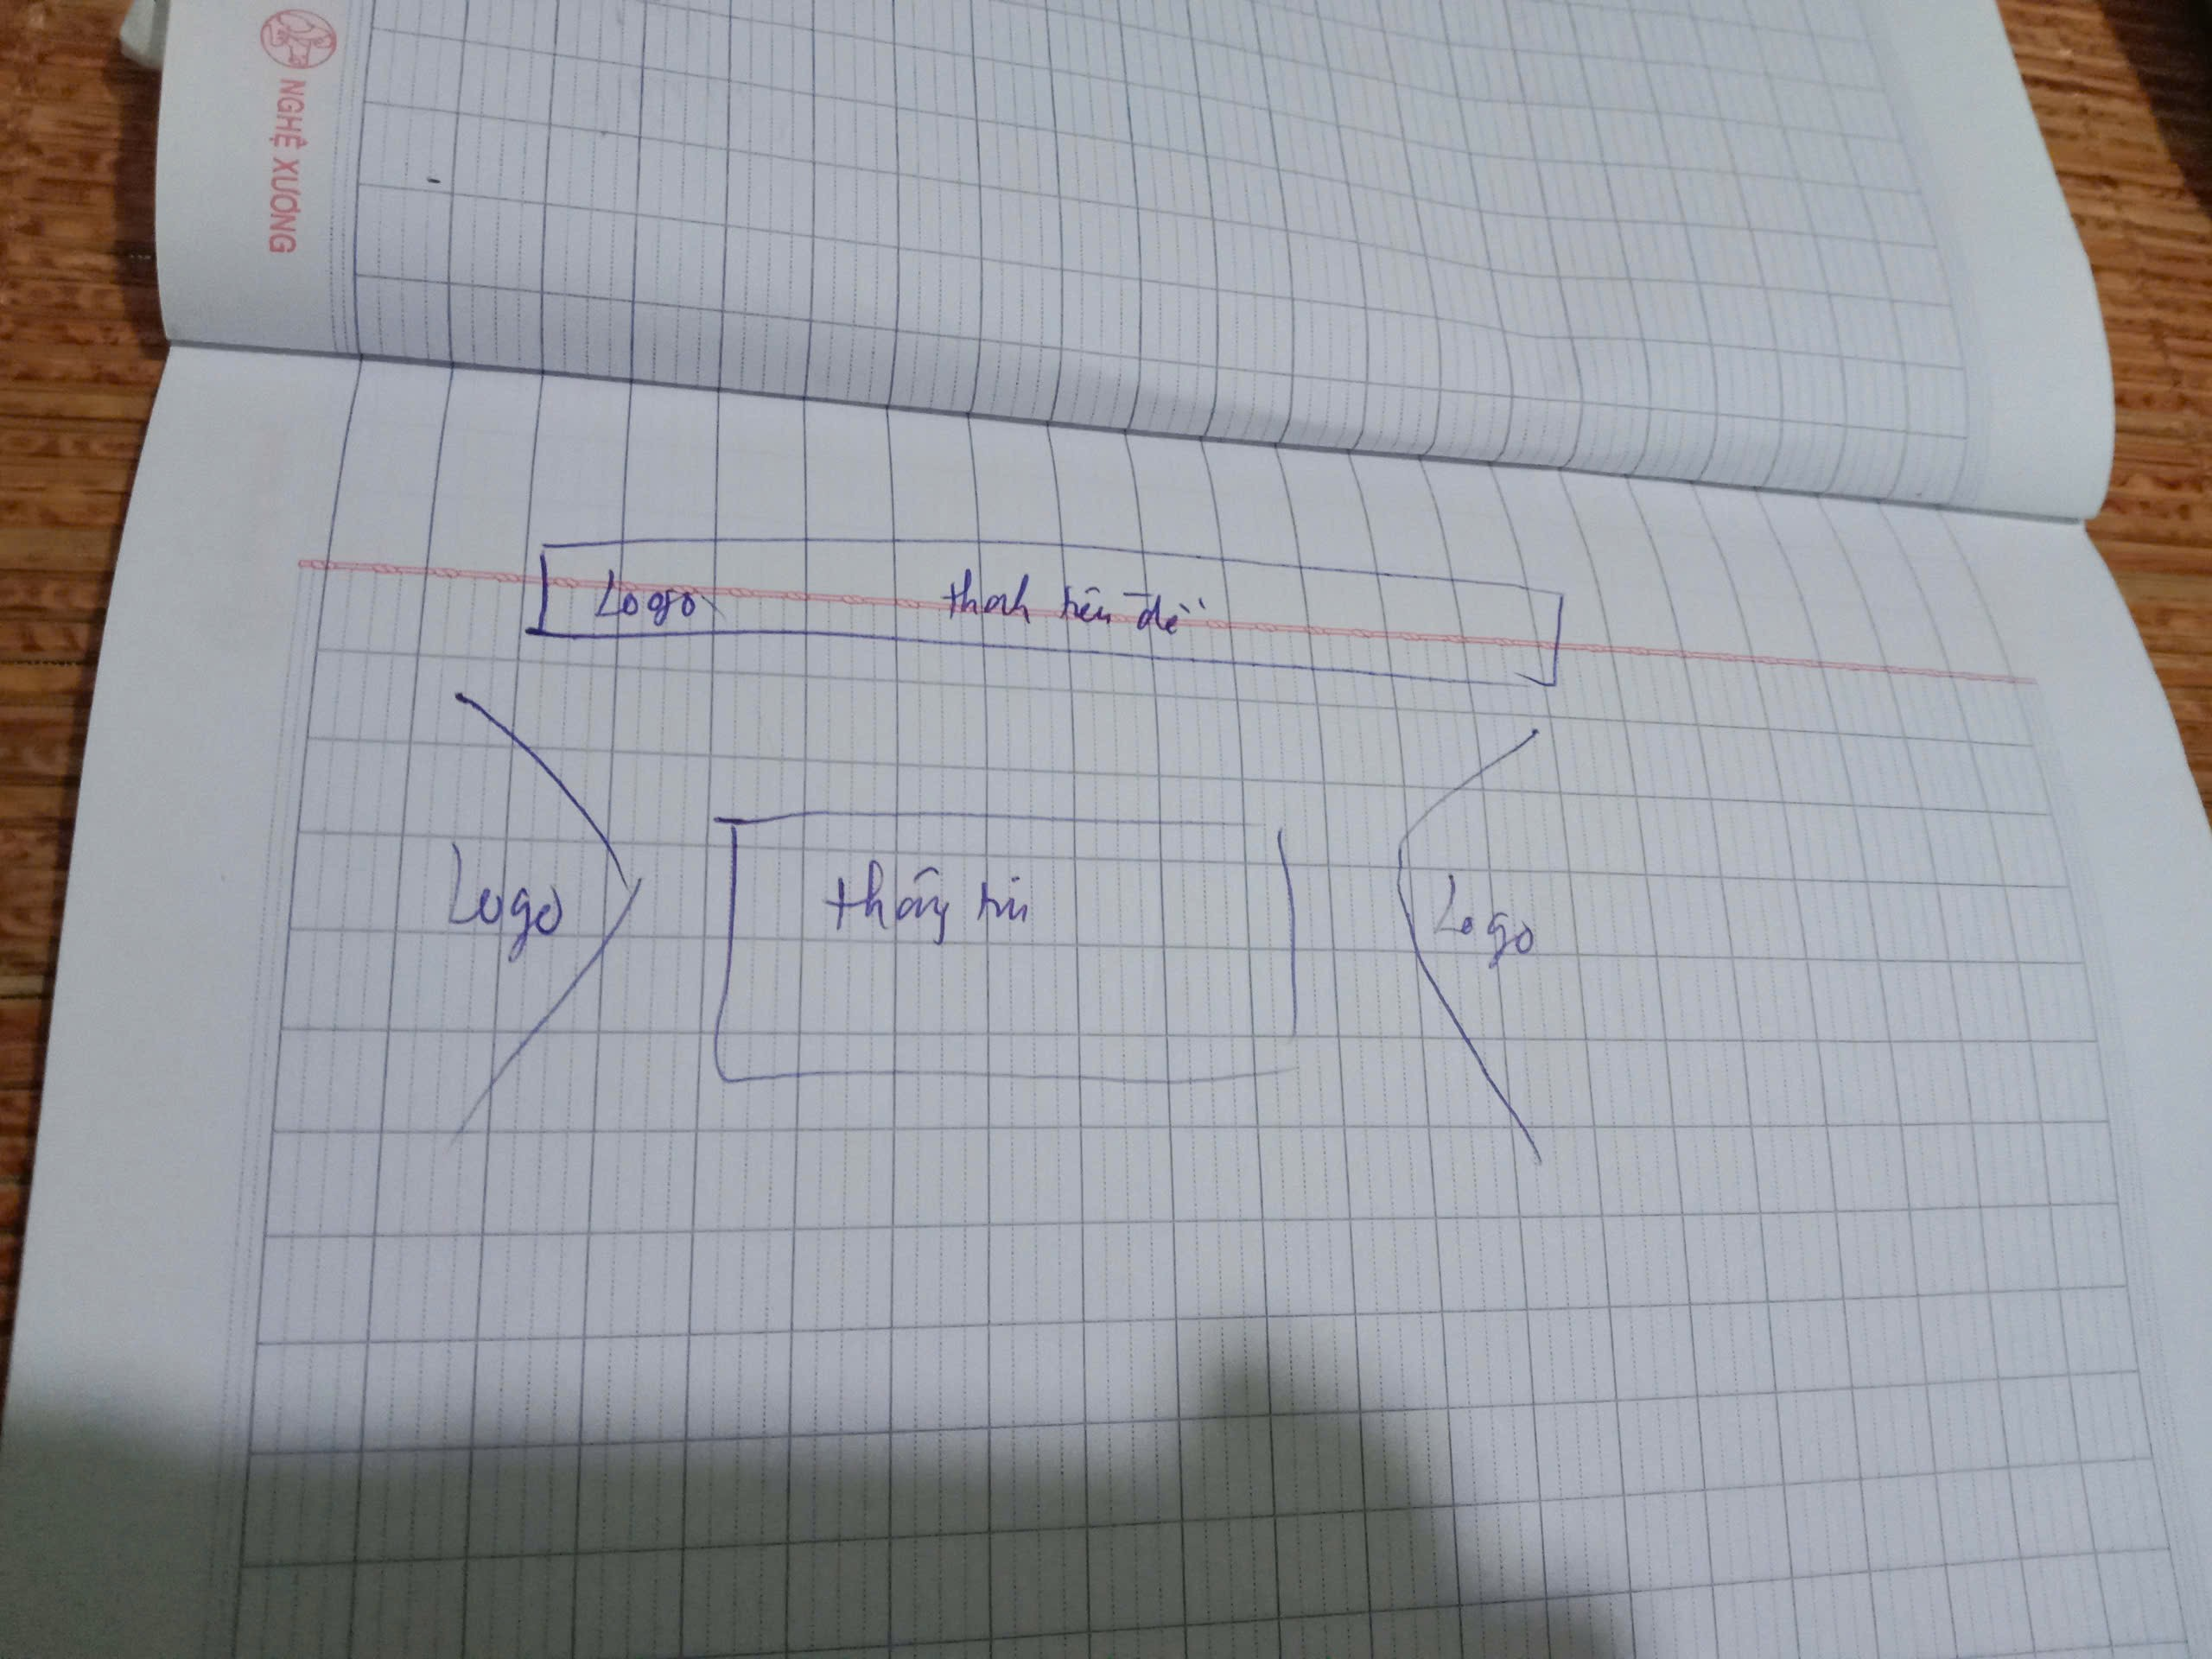 NGHỆ XƯƠNG
Logo thanh tiêu đề
Logo thông tin Logo